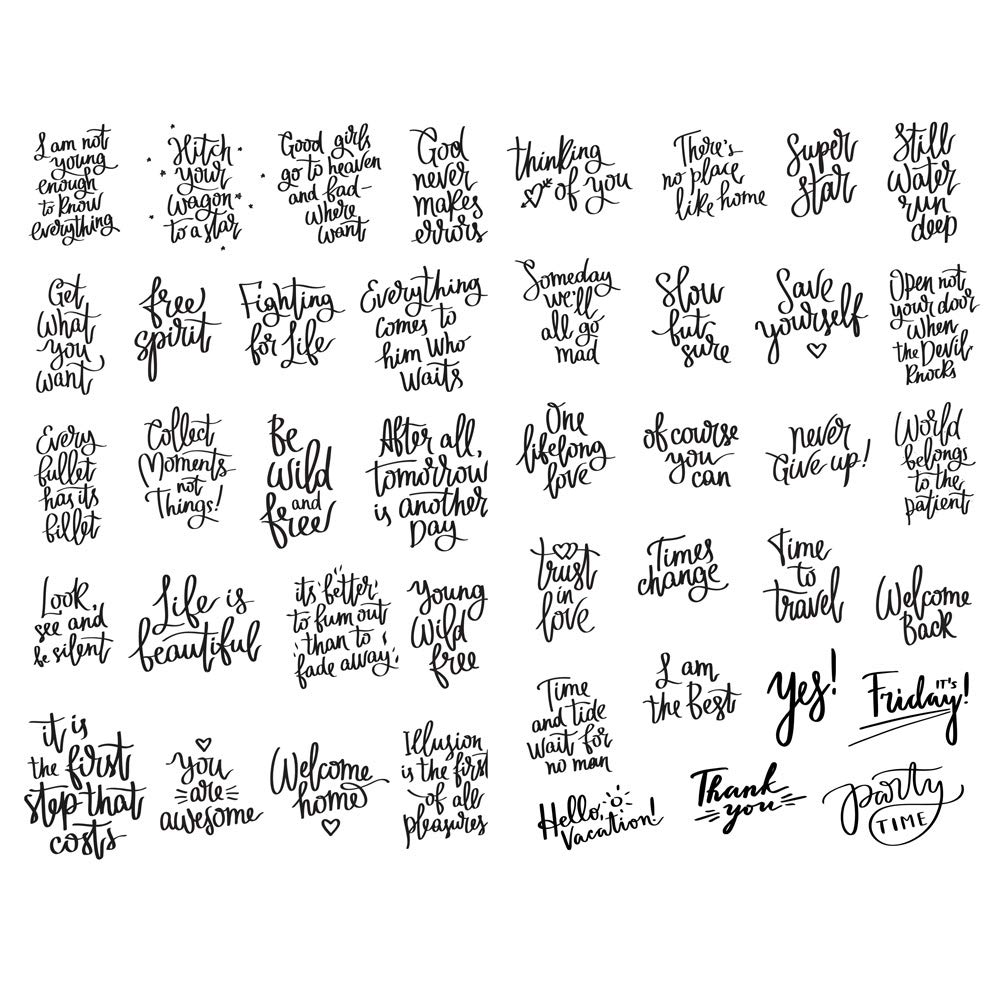 I am not
young
enough
to know
everything
Hitch
your
wagon
to a star
Good girls
go to heaven
and bad–
where
want
God
never
makes
errors
thinking
of you
There's
no place
like home
Super
star
Still
water
run
deep
Get
what
you
want
free
spirit
Fighting
for Life
Everything
comes to
him who
waits
Someday
we'll
all go
mad
Slow
but
sure
Save
yourself
Open not
your door
when
the Devil
knocks
Every
bullet
has its
billet
Collect
Moments
not
Things!
Be
wild
and
free
After all,
tomorrow
is another
Day
One
lifelong
love
of course
you
can
never
Give up!
World
belongs
to the
patient
Look,
see and
be silent
Life is
beautiful
its better
to burn out
than to
fade away
Young
Wild
free
trust
in
love
Times
change
Time
to
travel
Welcome
Back
it is
the first
step that
costs
you
are
awesome
Welcome
home
Illusion
is the first
of all
pleasures
Time
and tide
wait for
no man
I am
the Best
yes!
IT'S
Friday!
Hello,
Vacation!
Thank
you
party
TIME